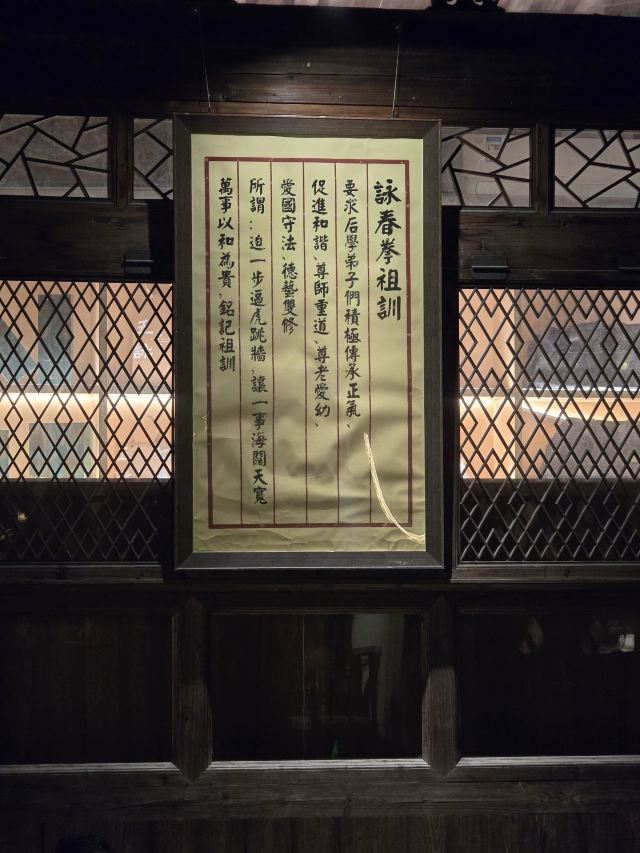 詠春拳祖訓
要求后學弟子們積極傳承正氣、
促進和諧、尊師重道、尊老愛幼、
愛國守法、德藝雙修
所謂：迫一步逼虎跳牆、讓一事海闊天寬
萬事以和為貴、銘記祖訓